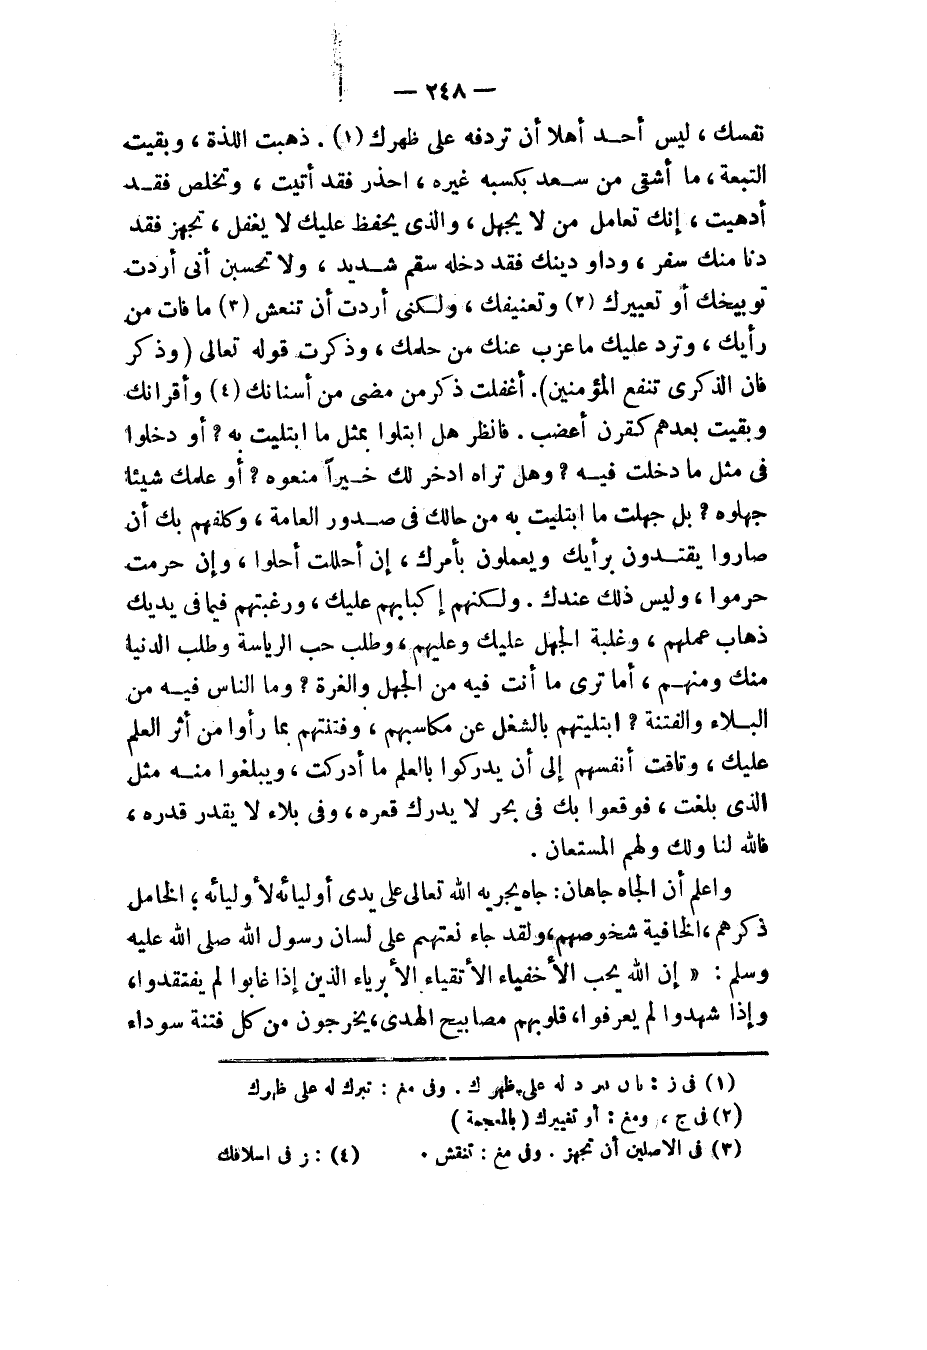 — ٢٤٨ —
نفسك ، ليس أحد أهلا أن تردفه على ظهرك (١) . ذهبت اللذة ، وبقيت
التبعة ، ما أشقى من سعد بكسبه غيره ، احذر فقد أتيت ، وتخلص فقد
أدهيت ، إنك تعامل من لا يجهل ، والذى يحفظ عليك لا يغفل ، تجهز فقد
دنا منك سفر ، وداو دينك فقد دخله سقم شديد ، ولا تحسبن أنى أردت
توبيخك أو تعييرك (٢) وتعنيفك ، ولكنى أردت أن تنعش (٣) ما فات من
رأيك ، وترد عليك ما عزب عنك من حلمك ، وذكرت قوله تعالى (وذكر
فان الذكرى تنفع المؤمنين). أغفلت ذكر من مضى من أسنانك (٤) وأقرانك
وبقيت بعدهم كقرن أعضب . فانظر هل ابتلوا بمثل ما ابتليت به ؟ أو دخلوا
فى مثل ما دخلت فيه ؟ وهل تراه ادخر لك خيراً منعوه ؟ أو علمك شيئا
جهلوه ؟ بل جهلت ما ابتليت به من حالك فى صدور العامة ، وكلفهم بك أن
صاروا يقتدون برأيك ويعملون بأمرك ، إن أحللت أحلوا ، وإن حرمت
حرموا ، وليس ذلك عندك . ولكنهم إكبابهم عليك ، ورغبتهم فيما فى يديك
ذهاب عملهم ، وغلبة الجهل عليك وعليهم ، وطلب حب الرياسة وطلب الدنيا
منك ومنهم ، أما ترى ما أنت فيه من الجهل والغرة ؟ وما الناس فيه من
البلاء والفتنة ؟ ابتليتهم بالشغل عن مكاسبهم ، وفتنتهم بما رأوا من أثر العلم
عليك ، وتاقت أنفسهم إلى أن يدركوا بالعلم ما أدركت ، ويبلغوا منه مثل
الذى بلغت ، فوقعوا بك فى بحر لا يدرك قعره ، وفى بلاء لا يقدر قدره ،
فالله لنا ولك ولهم المستعان .
واعلم أن الجاه جاهان : جاه يجريه الله تعالى على يدى أوليائه لأوليائه ؛ الخامل
ذكرهم ، الخافية شخوصهم ، ولقد جاء نعتهم على لسان رسول الله صلى الله عليه
وسلم : « إن الله يحب الأخفياء الأتقياء الأبرياء الذين إذا غابوا لم يفتقدوا،
وإذا شهدوا لم يعرفوا، قلوبهم مصابيح الهدى، يخرجون من كل فتنة سوداء
(١) فى ز : له على ظهرك . وفى مغ : تبرك له على ظهرك
(٢) فى ج ، ومغ : أو تغييرك (بالمعجمة)
(٣) فى الاصلين أن تجهز . وفى مغ : تنقش . (٤) : ز فى اسلافك